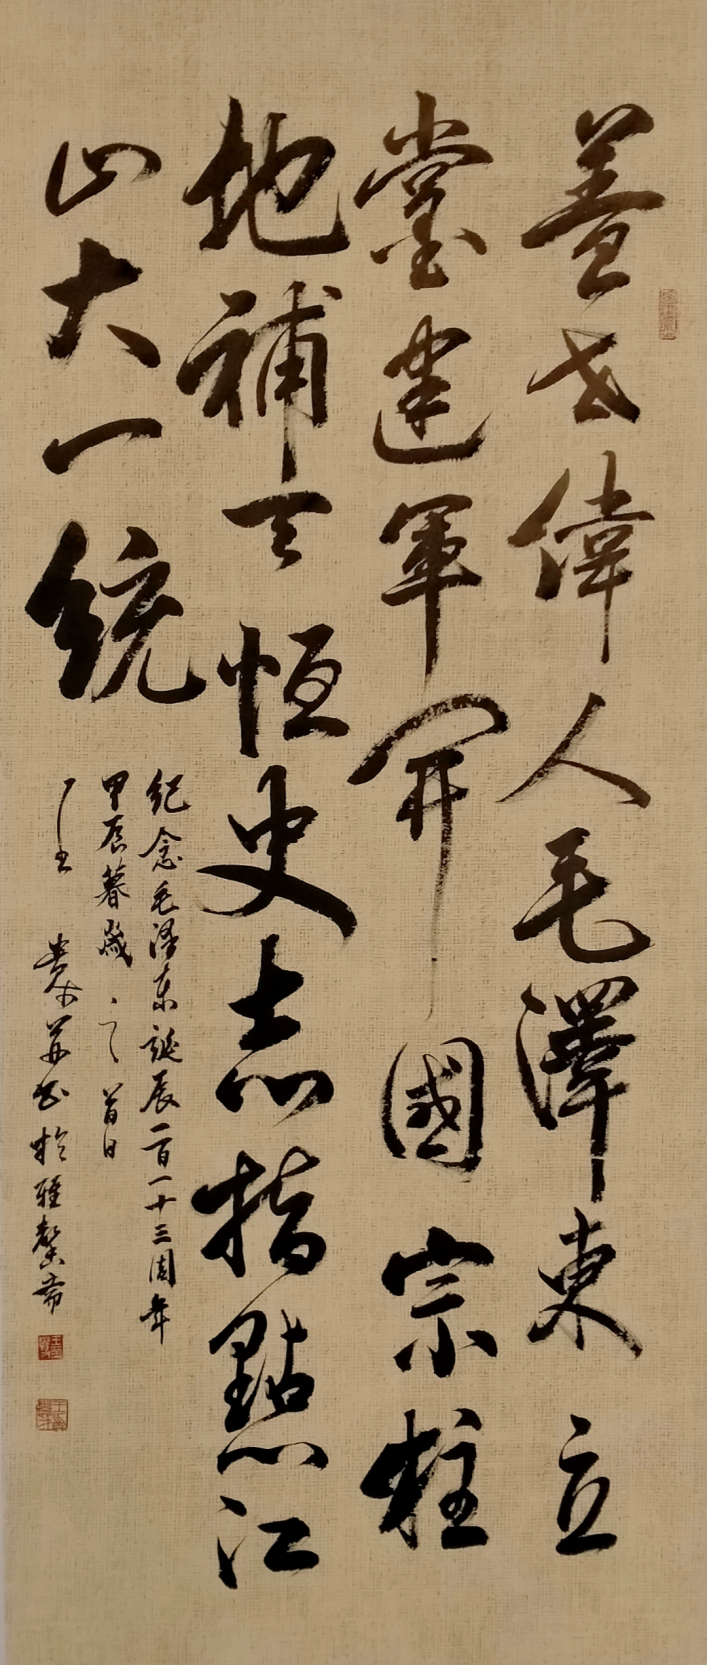 蓋世偉人毛澤東立
黨建軍開國宗柱
地補天恒史志指點江
山大一統
紀念毛澤東誕辰一百一十三周年
甲辰暮歲之首日
王贵華书於雅馨斋